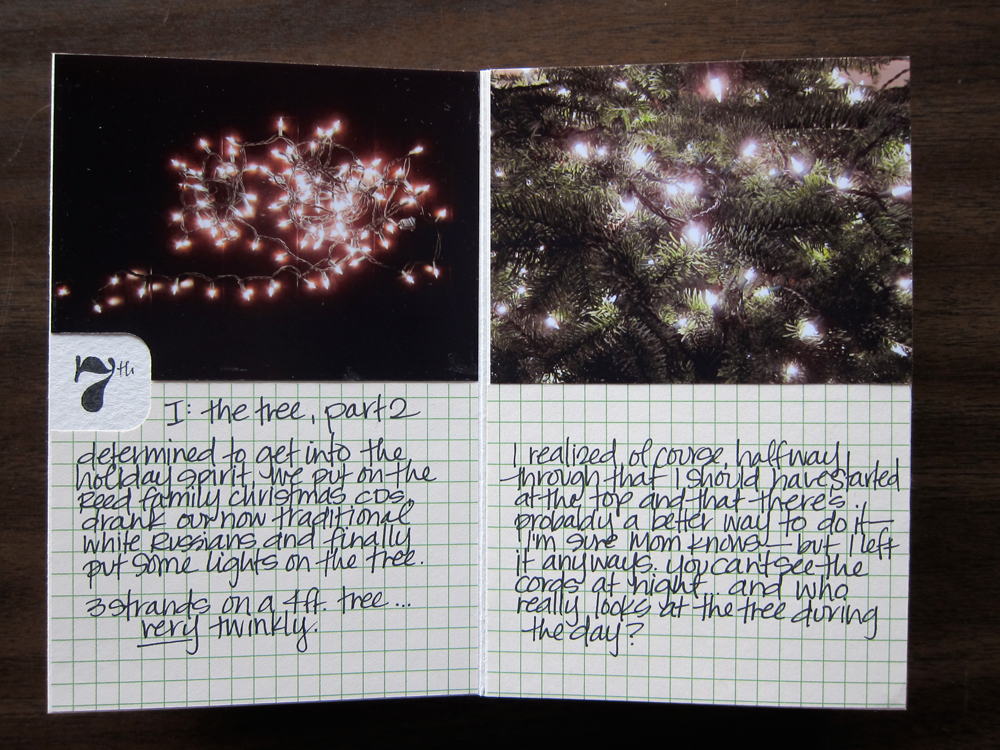 7th
I: the tree, part 2
determined to get into the
holiday spirit, we put on the
Reed family christmas CDs,
drank our now traditional
white Russians and finally
put some lights on the tree.
3 strands on a 4ft. tree...
very twinkly.
I realized, of course, halfway
through that I should have started
at the top and that there's
probably a better way to do it—
I'm sure Mom knows— but I left
it anyways. you can't see the
cords at night... and who
really looks at the tree during
the day?